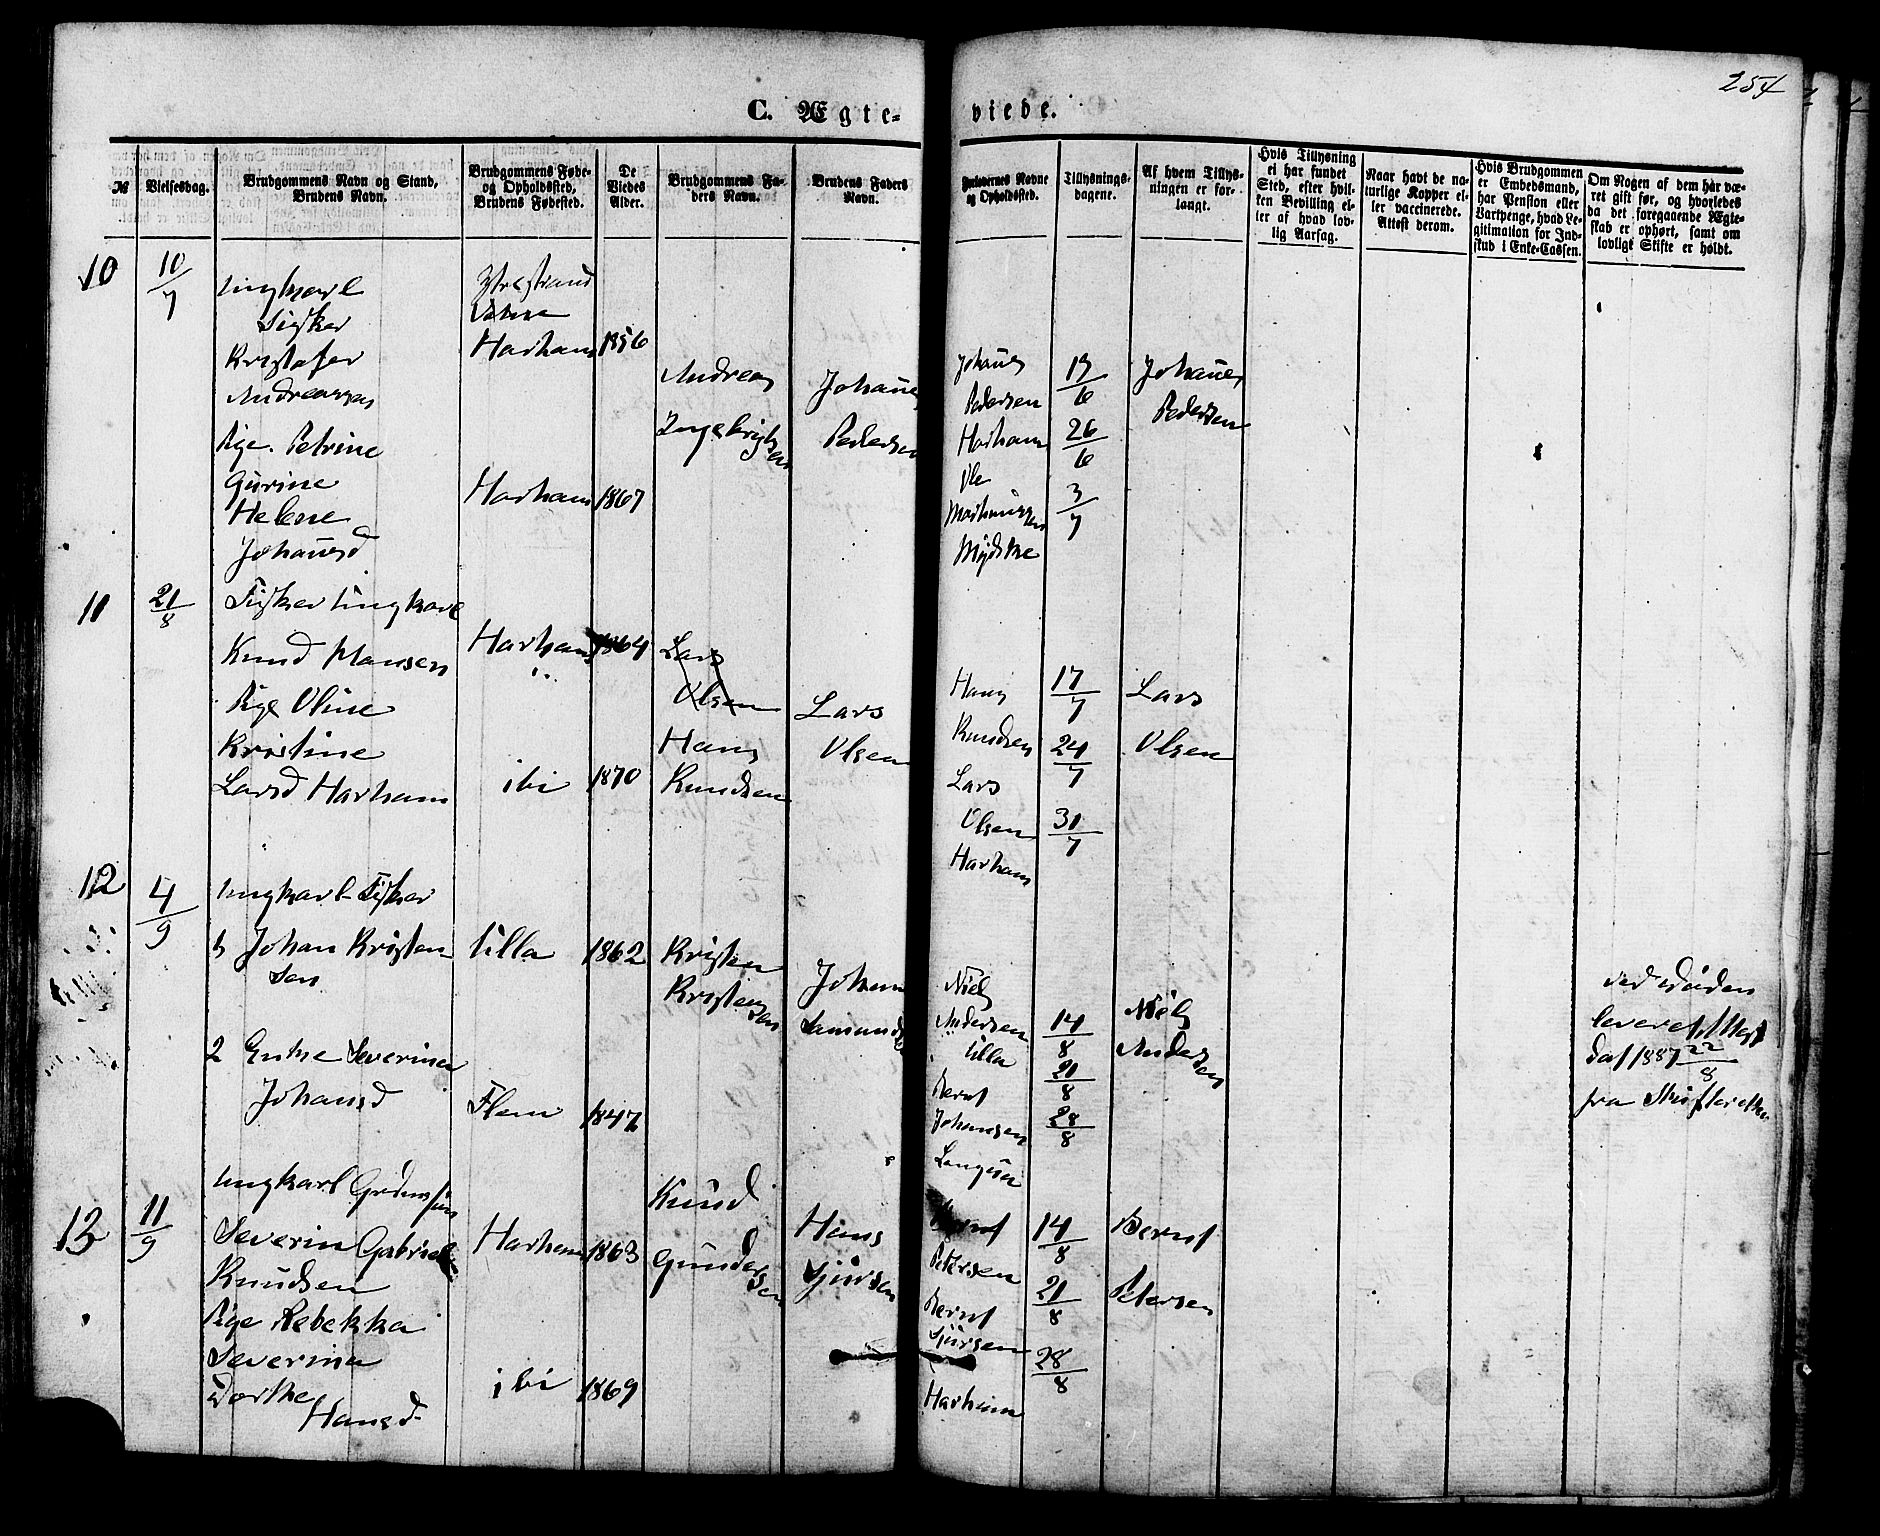 254
C. Ægte-
viede.
№
Vielsesdag.
Brudgommens Navn og Stand,
Brudens Navn.
Brudgommens Føde-
og Opholdssted,
Brudens Fødested.
De
Viedes
Alder.
Brudgommens Fa-
ders Navn.
Brudens Faders
Navn.
Forlovernes Navne
og Opholdssted.
Tillysnings-
dagene.
Af hvem Tillys-
ningen er for-
langt.
Hvis Tillysning
ei har fundet
Sted, efter hvil-
ken Bevilling el-
ler af hvad lov-
lig Aarsag.
Naar havt de na-
turlige Kopper el-
ler vaccinerede.
Attest derom.
Hvis Brudgommen
er Embedsmand,
har Pension eller
Vartpenge, hvad Le-
gitimation for Ind-
skud i Enke-Cassen.
Om Nogen af dem har væ-
ret gift før, og hvorledes
da det foregaaende Ægte-
skab er ophørt, samt om
lovligt Skifte er holdt.
10
10/7
Ungkarl
Fisker
Kristofer
Andreassen
Pige Petrine
Gurine
Helene
Johansd
Harham
1856
Harham
1867
Andreas
Ingebrigtsen
Johannes
Pedersen
Johannes
Pedersen
Harham
Ole
Mathiussen
13/6
26/6
3/7
Johannes
Pedersen
11
21/8
Fisker Ungkarl
Knud Hansen
Pige Oline
Kristine
Larsd Harham
Harham
1864
ibi
1870
Lars
Olsen
Hans
Knudsen
Lars
Olsen
Hans
Knudsen
Lars
Olsen
Harham
17/7
24/7
31/7
Lars
Olsen
12
4/9
Ungkarl Fisker
Johan Kristen-
sen
2 Enke Severina
Johansd
Ulla
1862
Flem
1847
Kristen
Kristensen
Johan
Niels
Andersen
Ulla
Bernt
Johansen
Longva
14/8
21/8
28/8
Niels
Andersen
ved Døden
dat 1887 22/8
fra Skifteretten
13
11/9
Ungkarl
Severin Gabriel
Knudsen
Pige Rebekka
Severina
Dorthe
Hansd
Harham
1863
ibi
1869
Knud
Gundersen
Hans
Sjursen
Bernt
Petersen
Bernt
Sjursen
Harham
14/8
21/8
28/8
Bernt
Petersen